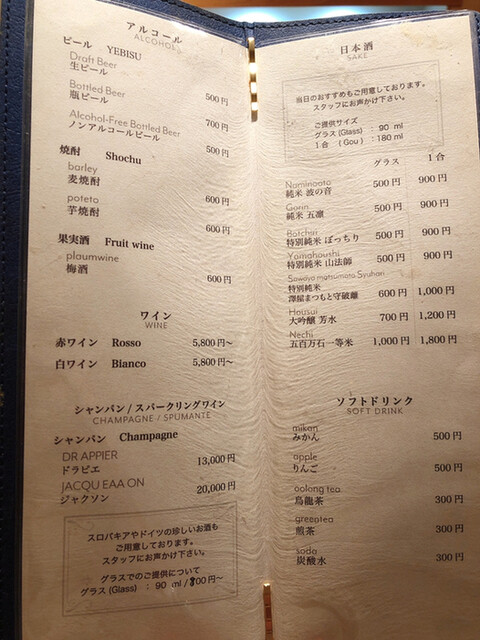 アルコール
ALCOHOLS
ビール YEBISU
Draft Beer
生ビール 500円
Bottled Beer
瓶ビール 700円
Alcohol-Free Bottled Beer
ノンアルコールビール 500円
焼酎 Shochu
barley
麦焼酎 600円
poteto
芋焼酎 600円
果実酒 Fruit wine
plaumwine
梅酒 600円
ワイン
WINE
赤ワイン Rosso 5,800円～
白ワイン Bianco 5,800円～
シャンパン/スパークリングワイン
CHAMPAGNE / SPUMANTE
シャンパン Champagne
DR APPIER
ドラピエ 13,000円
JACQU EAA ON
ジャクソン 20,000円
スロバキアやドイツの珍しいお酒も
ご用意しております。
スタッフにお声かけ下さい。
グラスでのご提供について
グラス(Glass) : 90 ml / 800円～
日本酒
SAKE
当日のおすすめもご用意しております。
スタッフにお声かけ下さい。
ご提供サイズ
グラス(Glass) : 90 ml
1合 ( Gou ) : 180 ml
グラス 1合
Naminooto
純米 波の音 500円 900円
Gorin
純米 五凛 500円 900円
Botchiri
特別純米 ぼっちり 500円 900円
Yamahoushi
特別純米 山法師 500円 900円
Sawaya matsumoto Syuhari
特別純米
澤屋まつもと守破離 600円 1,000円
Housui
大吟醸 芳水 700円 1,200円
Nechi
五百万石一等米 1,000円 1,800円
ソフトドリンク
SOFT DRINK
mikan
みかん 500円
apple
りんご 500円
oolong tea
烏龍茶 300円
greentea
煎茶 300円
soda
炭酸水 300円